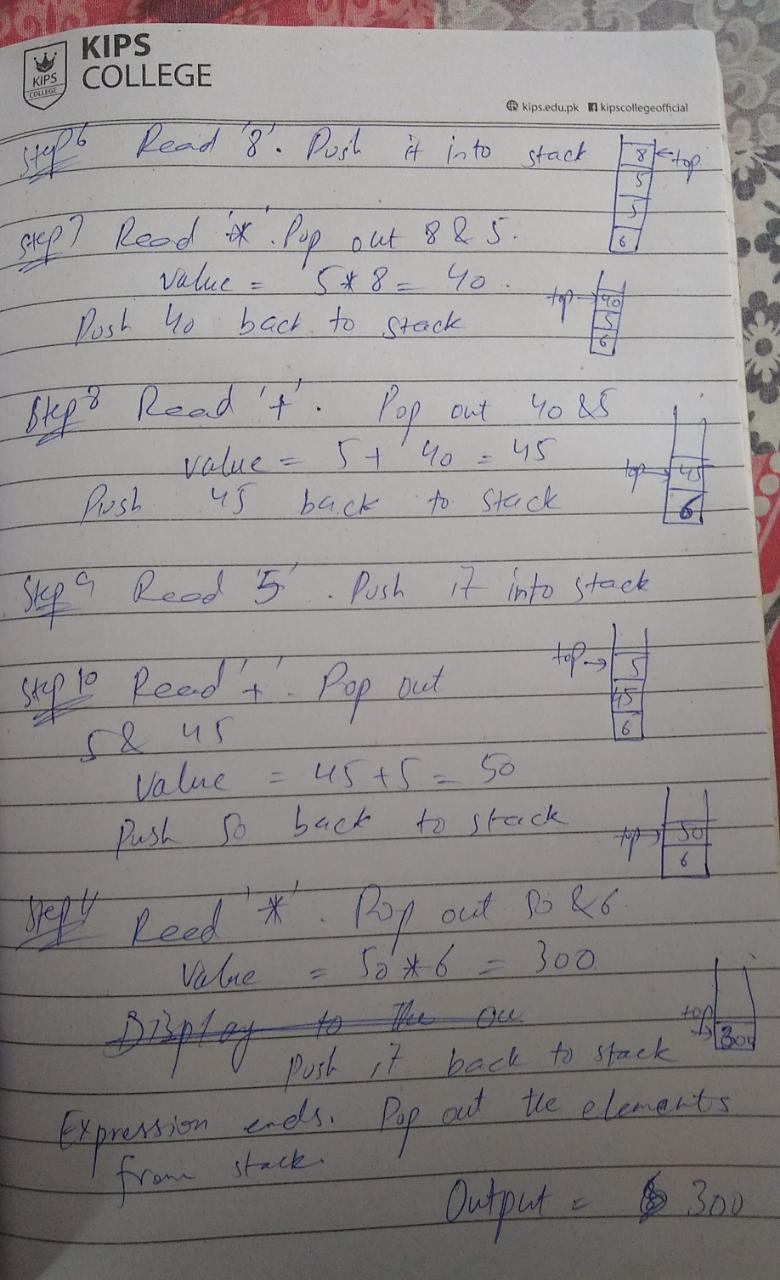 KIPS
COLLEGE
KIPS
COLLEGE
kips.edu.pk kipscollegeofficial
Step 6 Read '8'. Push it into stack
8 ← top
5
5
6
Step 7 Read '*'. Pop out 8 & 5.
Value = 5 * 8 = 40.
Push 40 back to stack
top → 40
5
6
Step 8 Read '+'. Pop out 40 & 5
value = 5 + 40 = 45
Push 45 back to stack
top → 45
6
Step 9 Read '5'. Push it into stack
top → 5
45
6
Step 10 Read '+'. Pop out
5 & 45
Value = 45 + 5 = 50
Push 50 back to stack
top → 50
6
Step 11 Read '*'. Pop out 50 & 6
Value = 50 * 6 = 300
Display to the ou
Push it back to stack
top → 300
Expression ends. Pop out the elements
from stack.
Output = 300